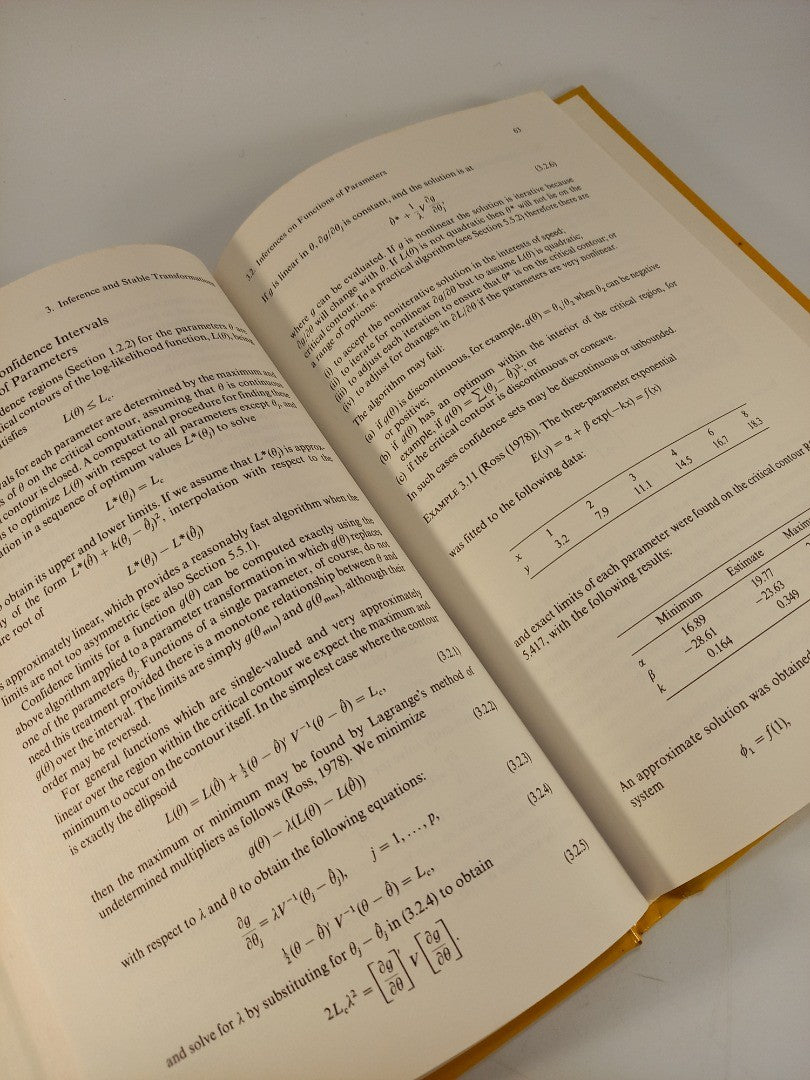 3. Inference and Stable Transformation
onfidence Intervals
of Parameters
dence regions (Section 1.2.2) for the parameters θ are
tical contours of the log-likelihood function, L(θ),
atisfies
L(θ) ≤ L_c.
vals for each parameter are determined by the maximum and
s of θ on the critical contour, assuming that θ is continuous
contour is closed. A computational procedure for finding these
is to optimize L(θ) with respect to all parameters except θ_j, and
ation in a sequence of optimum values L*(θ_j) to solve
L*(θ_j) = L_c
o obtain its upper and lower limits. If we assume that L*(θ_j) is approx-
y of the form L*(θ̂_j) + k(θ_j − θ̂_j)², interpolation with respect to the
re root of
L*(θ_j) − L*(θ̂_j)
s approximately linear, which provides a reasonably fast algorithm when the
limits are not too asymmetric (see also Section 5.5.1).
Confidence limits for a function g(θ) can be computed exactly using the
above algorithm applied to a parameter transformation in which g(θ) replaces
one of the parameters θ_j. Functions of a single parameter, of course, do not
need this treatment provided there is a monotone relationship between θ and
g(θ) over the interval. The limits are simply g(θ_min) and g(θ_max), although their
order may be reversed.
For general functions which are single-valued and very approximately
linear over the region within the critical contour we expect the maximum and
minimum to occur on the contour itself. In the simplest case where the contour
is exactly the ellipsoid
L(θ) = L(θ̂) + ½(θ − θ̂)′ V⁻¹(θ − θ̂) = L_c, (3.2.1)
then the maximum or minimum may be found by Lagrange's method of
undetermined multipliers as follows (Ross, 1978). We minimize
g(θ) − λ(L(θ) − L(θ̂)) (3.2.2)
with respect to λ and θ to obtain the following equations:
∂g/∂θ_j = λV⁻¹(θ_j − θ̂_j), j = 1, ..., p, (3.2.3)
½(θ − θ̂)′ V⁻¹(θ − θ̂) = L_c, (3.2.4)
and solve for λ by substituting for θ_j − θ̂_j in (3.2.4) to obtain
2L_cλ² = [∂g/∂θ]′ V [∂g/∂θ]. (3.2.5)
3.2. Inferences on Functions of Parameters 63
If g is linear in θ, ∂g/∂θ_j is constant, and the solution is at
θ̂* + 1/λ V ∂g/∂θ_j (3.2.6)
where g can be evaluated. If g is nonlinear the solution is iterative because
∂g/∂θ will change with θ. If L(θ) is not quadratic then θ* will not lie on the
critical contour. In a practical algorithm (see Section 5.5.2) therefore there are
a range of options:
(i) to accept the noniterative solution in the interests of speed;
(ii) to iterate for nonlinear ∂g/∂θ but to assume L(θ) is quadratic;
(iii) to adjust each iteration to ensure that θ* is on the critical contour; or
(iv) to adjust for changes in ∂L/∂θ if the parameters are very nonlinear.
The algorithm may fail:
(a) if g(θ) is discontinuous, for example, g(θ) = θ₁/θ₂ when θ₂ can be negative
or positive;
(b) if g(θ) has an optimum within the interior of the critical region, for
example, if g(θ) = ∑(θ_j − θ̂_j)²; or
(c) if the critical contour is discontinuous or concave.
In such cases confidence sets may be discontinuous or unbounded.
EXAMPLE 3.11 (Ross (1978)). The three-parameter exponential
E(y) = α + β exp(−kx) = f(x)
was fitted to the following data:
x 1 2 3 4 6 8
y 3.2 7.9 11.1 14.5 16.7 18.3
and exact limits of each parameter were found on the critical contour
5.417, with the following results:
Minimum Estimate Maxi
α 16.89 19.77
β −28.61 −23.63
k 0.164 0.349
An approximate solution was obtained
system
ϕ₁ = f(1),